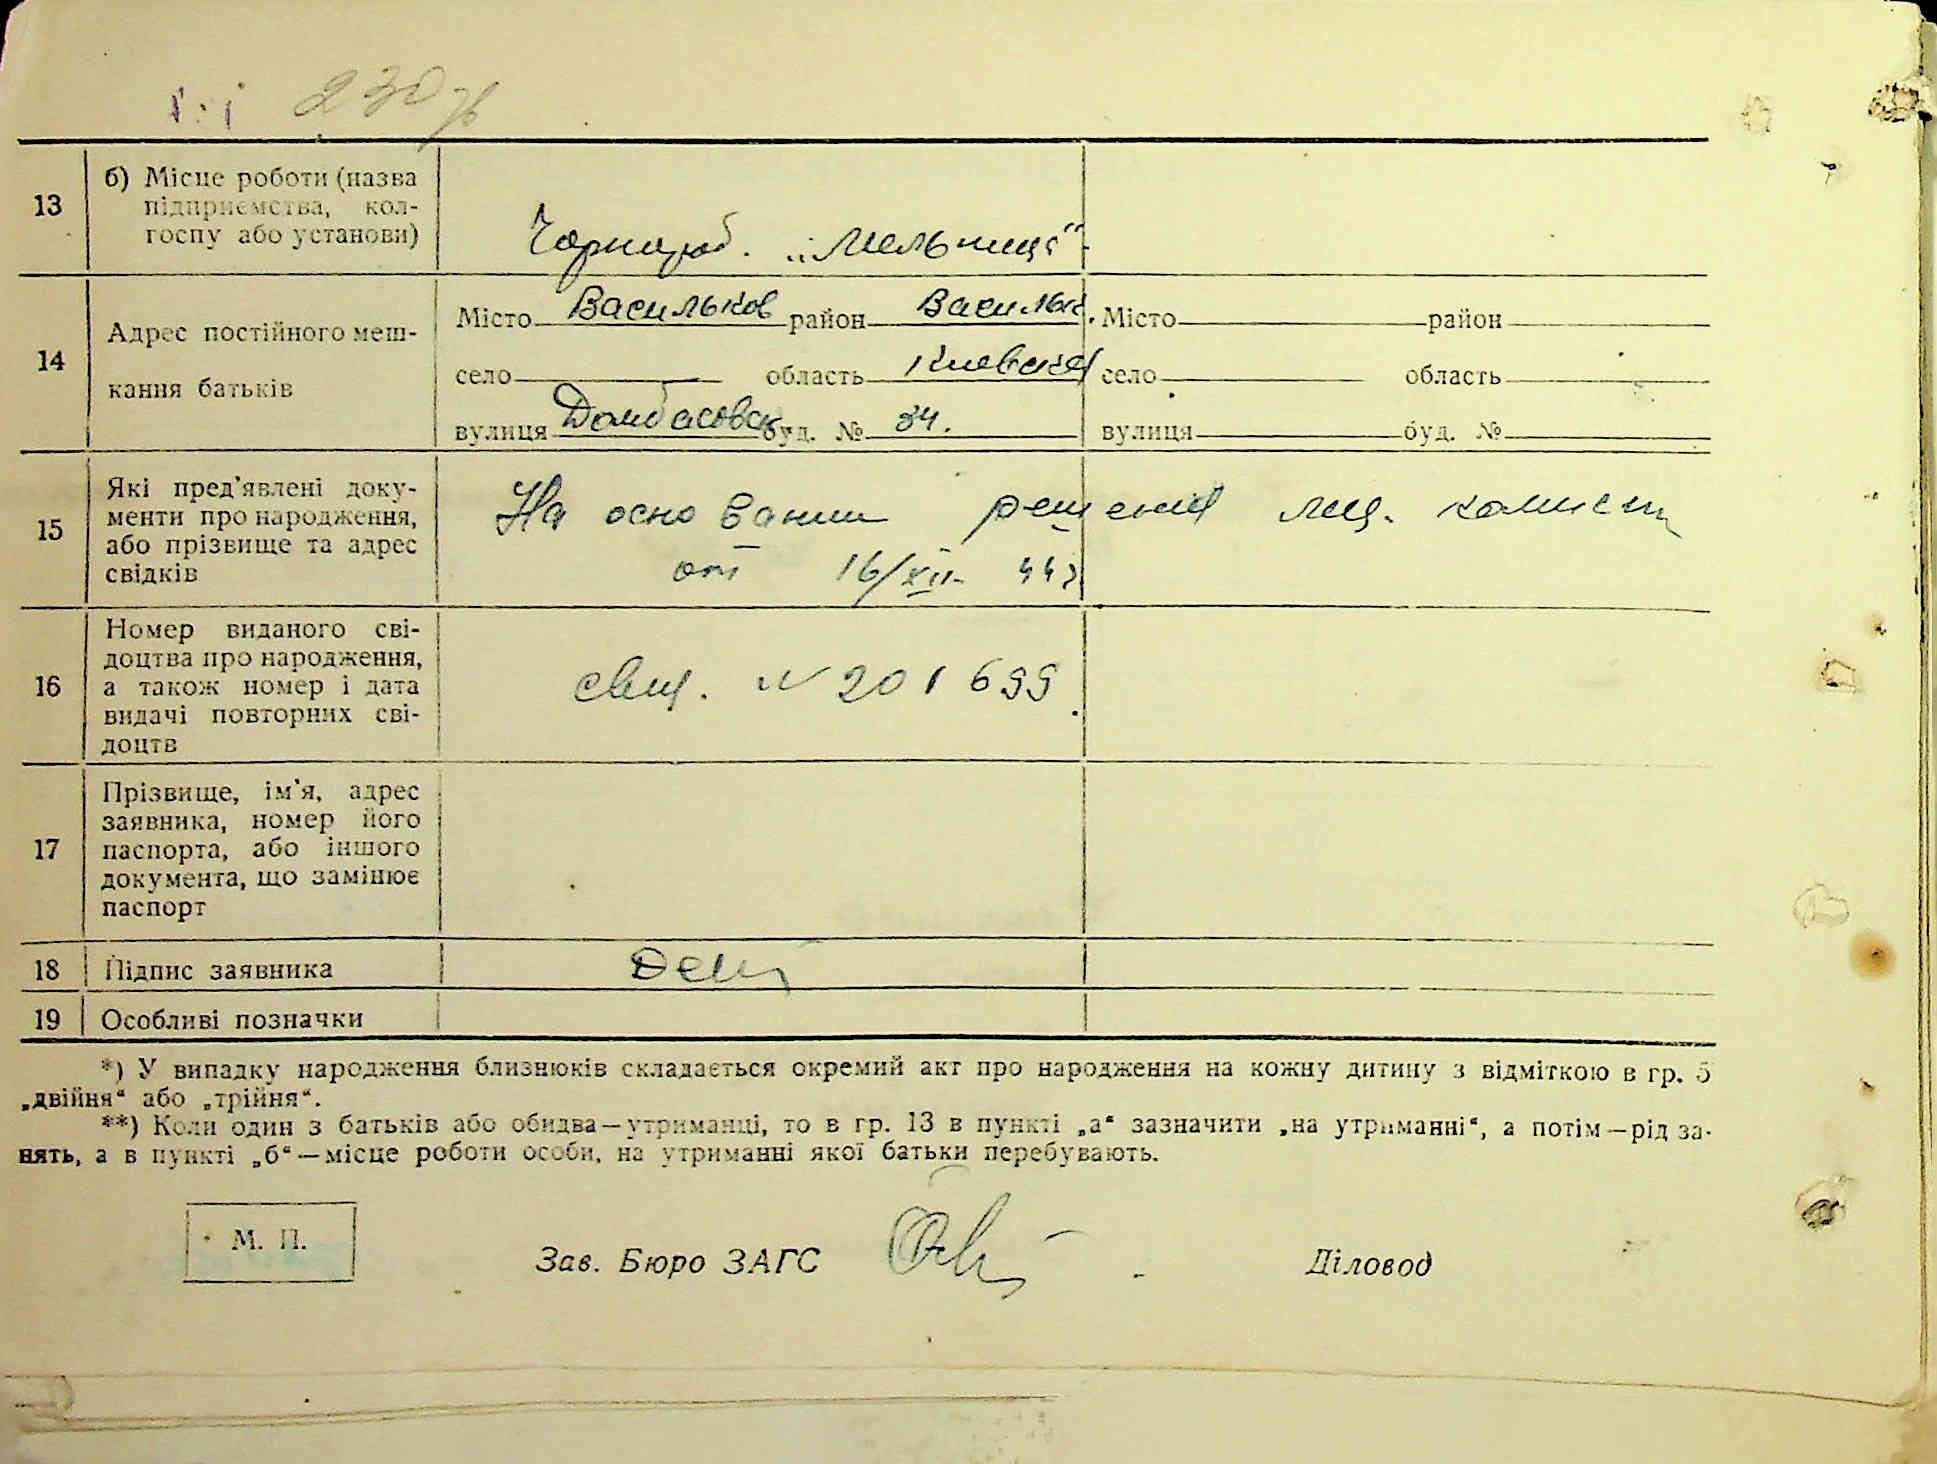 230
13 б) Місце роботи (назва
підприємства, кол-
госпу або установи)
Чорнороб. „Мельница“
14 Адрес постійного меш-
кання батьків
Місто Васильков район Васильк. Місто район
село область Киевская село область
вулиця буд. № 34. вулиця буд. №
15 Які пред'явлені доку-
менти про народження,
або прізвище та адрес
свідків
На основании решения мед. комисии
от 16/XII- 44г
16 Номер виданого сві-
доцтва про народження,
а також номер і дата
видачі повторних сві-
доцтв
свид. N 201699
17 Прізвище, ім'я, адрес
заявника, номер його
паспорта, або іншого
документа, що замінює
паспорт
18 Підпис заявника
19 Особливі позначки
*) У випадку народження близнюків складається окремий акт про народження на кожну дитину з відміткою в гр. 5
„двійня“ або „трійня“.
**) Коли один з батьків або обидва—утриманці, то в гр. 13 в пункті „а“ зазначити „на утриманні“, а потім—рід за-
нять, а в пункті „б“—місце роботи особи, на утриманні якої батьки перебувають.
М. П.
Зав. Бюро ЗАГС Діловод